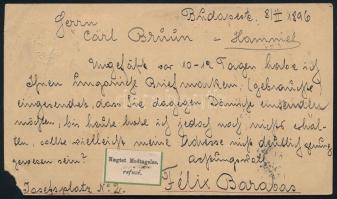 Herrn Budapest. 8/II 1896
Carl Bruun - Hammel
Ungefähr vor 10-12 Tagen habe ich
Ihnen ungarische Briefmarken (gebrauchte
eingesendet, dass Sie dagegen Dänische einsenden
möchten, bis heute habe ich jedoch noch nichts erhal-
ten, sollte vielleicht meine Adresse nicht deutlich genug
gewesen sein?
Negtet Modtagelse.
refusé.
Josefsplatz No
Félix Barabas